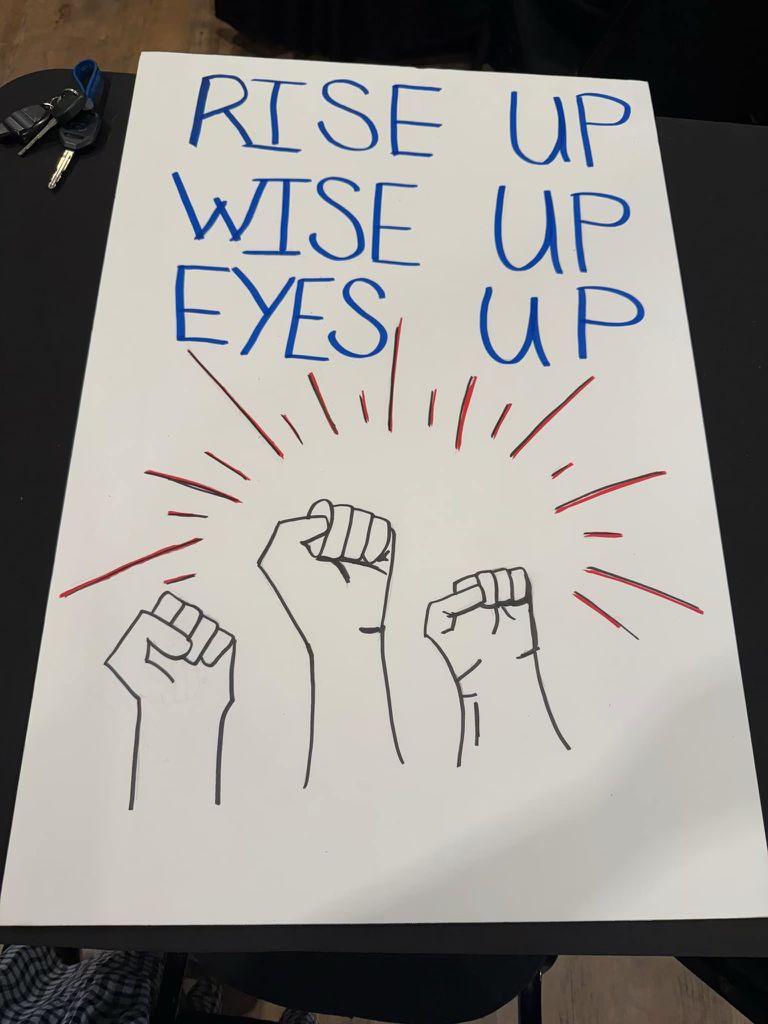 RISE UP
WISE UP
EYES UP